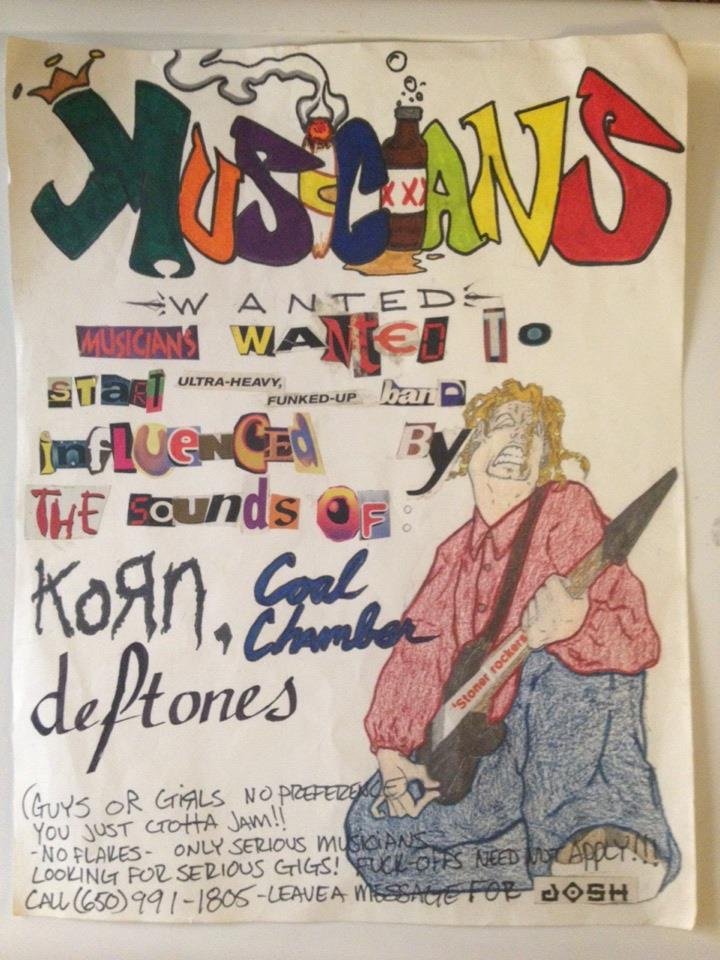 MUSICIANS
XXX
WANTED
MUSICIANS WANTED TO
START ULTRA-HEAVY, FUNKED-UP banD
influenCEd By
THE sounds OF:
KoЯn, Coal
Chamber
deftones
'Stoner rockers
(GUYS OR GIRLS NO PREFERENCE
YOU JUST GOTTA JAM!!
-NO FLAKES- ONLY SERIOUS MUSICIANS
LOOKING FOR SERIOUS GIGS! FUCK-OFFS NEED NOT APPLY!!!
CALL (650) 991-1805 - LEAVE A MESSAGE FOR JOSH